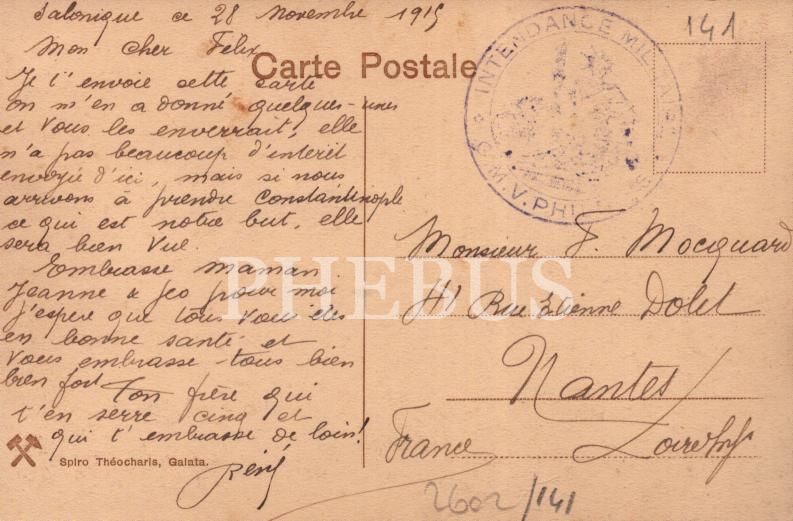 Salonique ce 28 Novembre 1915
Mon cher Felix
Je t'envoie cette carte
on m'en a donné quelques-unes
et vous les enverrait, elle
n'a pas beaucoup d'interêt
envoyée d'ici, mais si nous
arrivons à prendre Constantinople
ce qui est notre but, elle
sera bien vue.
Embrasse maman
Jeanne & Jeo pour moi
J'espère que tous vous êtes
en bonne santé et
vous embrasse tous bien
bien fort Ton frère qui
t'en serre cinq et
qui t'embrasse de loin!
René
Spiro Théocharis, Galata.
Carte Postale
INTENDANCE MILITAIRE
V. PHI
141
Monsieur F. Mocquard
41 Rue Etienne Dolet
Nantes
France Loire Infre
2602/141
PHEBUS